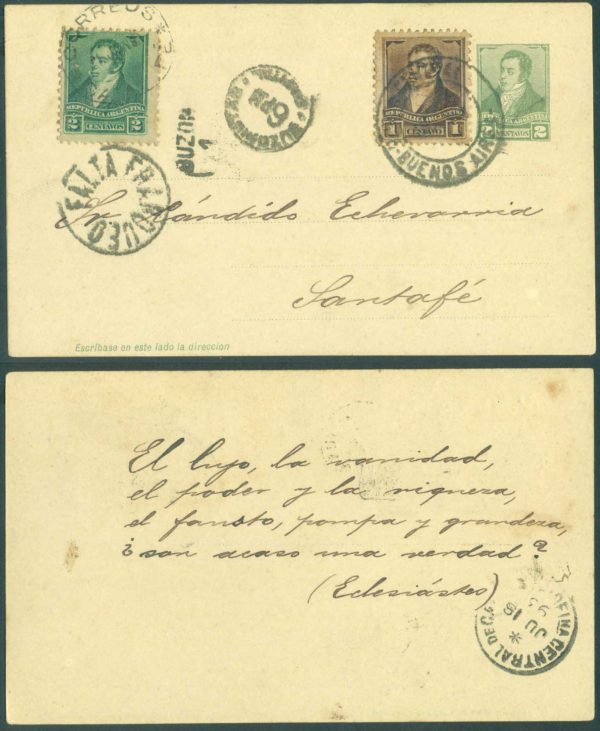 CORREOS
REPUBLICA ARGENTINA
2 CENTAVOS 2
BUZON
1
6 PM
REPUBLICA ARGENTINA
1 CENTAVO 1
BUENOS AIRES
CENTAVOS 2
FALTA FRANQUEO
Sr. Cándido Echevarria
Santafé
Escríbase en este lado la direccion
El lujo, la vanidad,
el poder y la riqueza,
el fausto, pompa y grandeza,
¿son acaso una verdad?
(Eclesiástes)
OFINA CENTRAL DE
JU 18